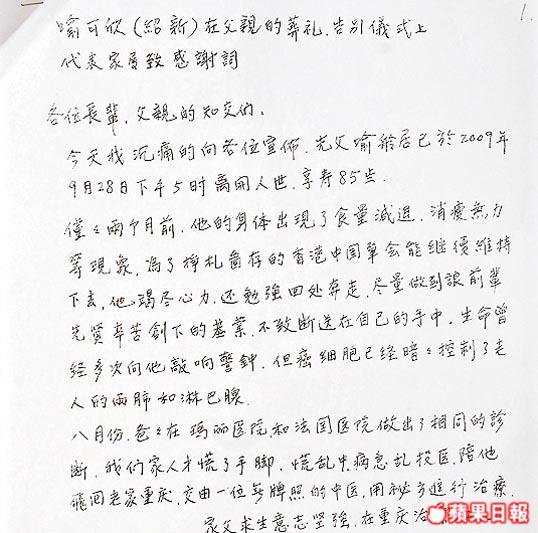 1.
喻可欣(紹新)在父親的葬礼.告别儀式上
代表家屬致感謝詞
各位長輩.父親的知交们.
今天我沉痛的向各位宣佈.先父喻舲居已於2009年
9月28日下午5时離開人世.享寿85岁.
僅々两个月前.他的身体出現了食量減退.消瘦無力
等現象.為了掙扎圖存的香港中国筆会能继續維持
下去.他竭尽心力.还勉強四处奔走.尽量做到讓前輩
先賢辛苦創下的基業.不致断送在自己的手中.生命曾
经多次向他敲响警鈡.但癌細胞已经暗々控制了老
人的両肺和淋巴腺.
八月份.爸々在瑪丽医院和法国医院做出了相同的診
断.我们家人才慌了手脚.慌乱中病急乱投医.陪他
飛回老家重庆.交由一位無牌照的中医.用秘方進行治療.
家父求生意志坚強.在重庆治
蘋果日報